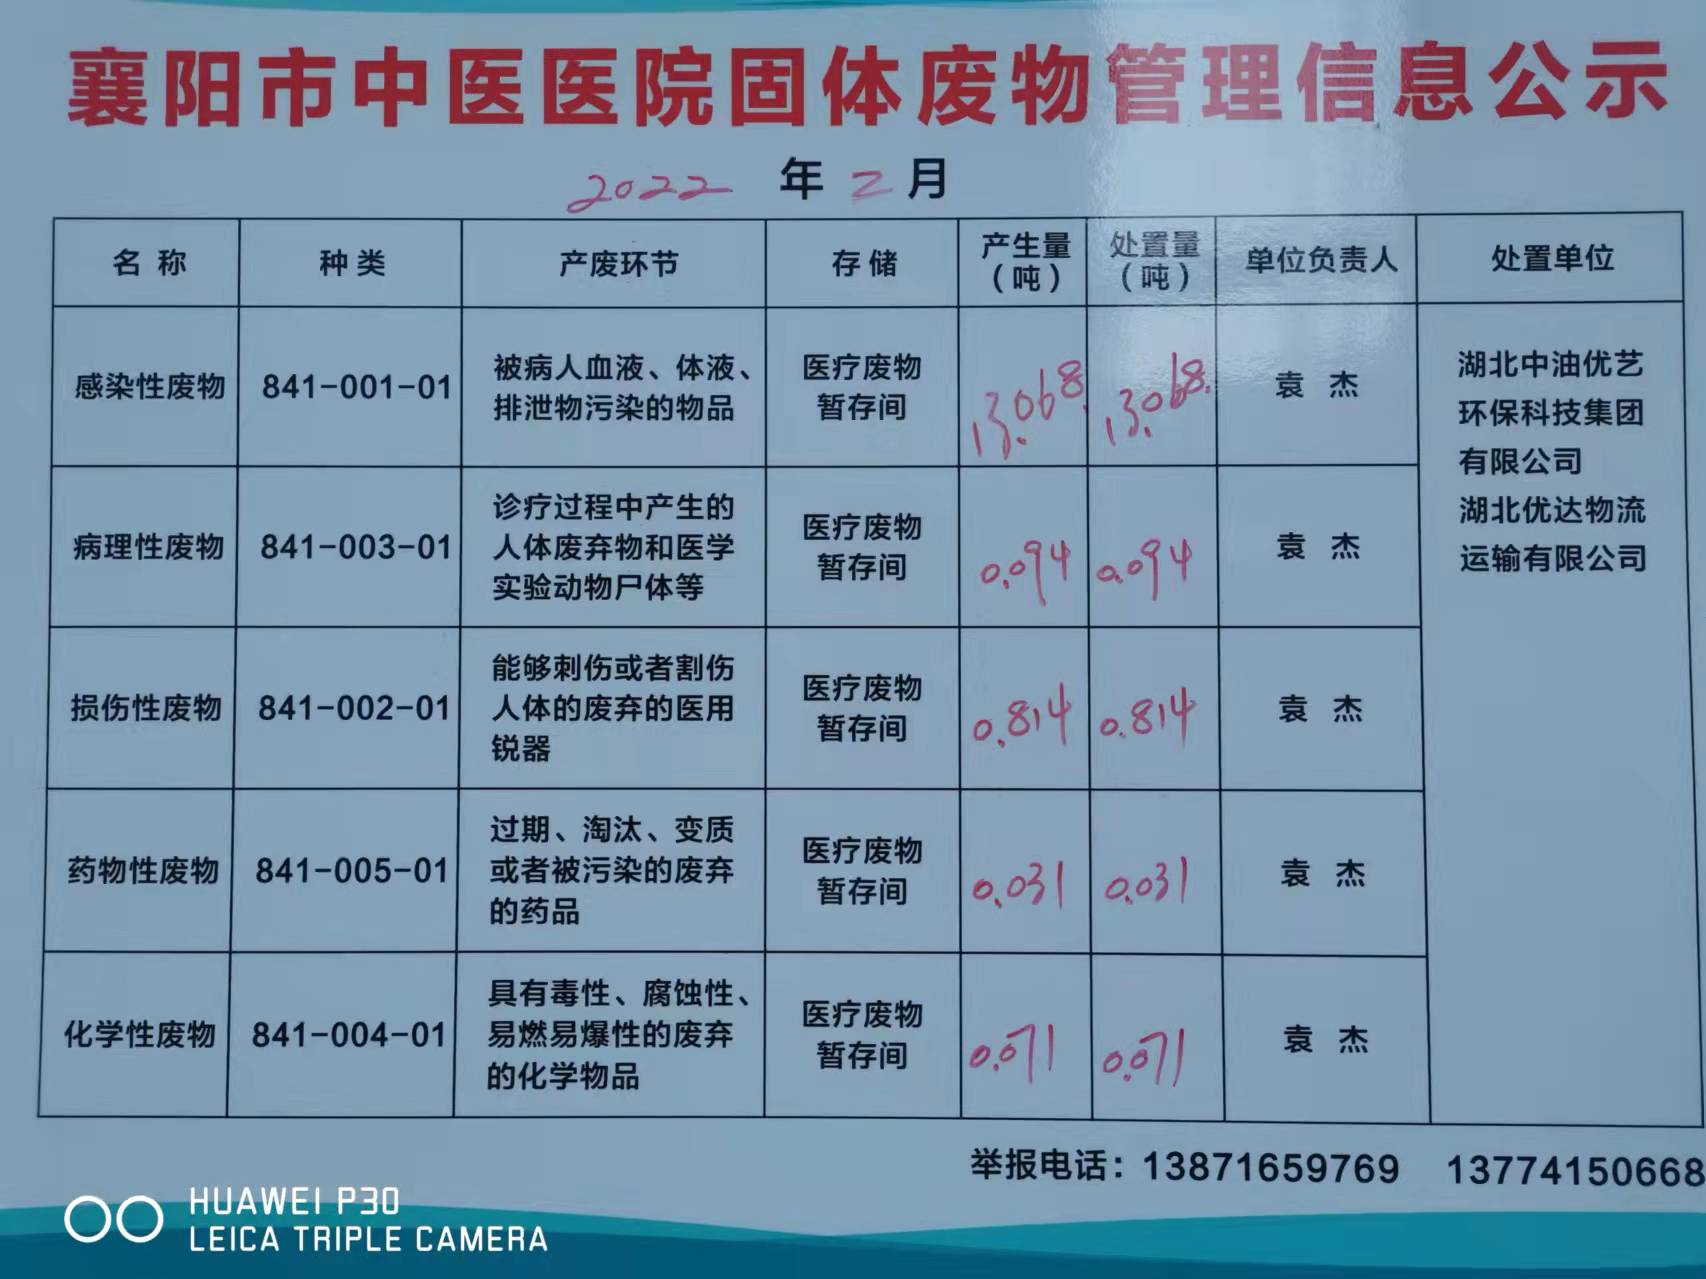 襄阳市中医医院固体废物管理信息公示
2022 年 2 月
名 称 种 类 产废环节 存 储 产生量（吨） 处置量（吨） 单位负责人 处置单位
感染性废物 841-001-01 被病人血液、体液、 医疗废物 13.068 13.068 袁 杰
排泄物污染的物品 暂存间
病理性废物 841-003-01 诊疗过程中产生的 医疗废物 0.094 0.094 袁 杰
人体废弃物和医学 暂存间
实验动物尸体等
损伤性废物 841-002-01 能够刺伤或者割伤 医疗废物 0.814 0.814 袁 杰
人体的废弃的医用 暂存间
锐器
药物性废物 841-005-01 过期、淘汰、变质 医疗废物 0.031 0.031 袁 杰
或者被污染的废弃 暂存间
的药品
化学性废物 841-004-01 具有毒性、腐蚀性、 医疗废物 0.071 0.071 袁 杰
易燃易爆性的废弃 暂存间
的化学物品
湖北中油优艺
环保科技集团
有限公司
湖北优达物流
运输有限公司
举报电话：13871659769 13774150668
HUAWEI P30
LEICA TRIPLE CAMERA